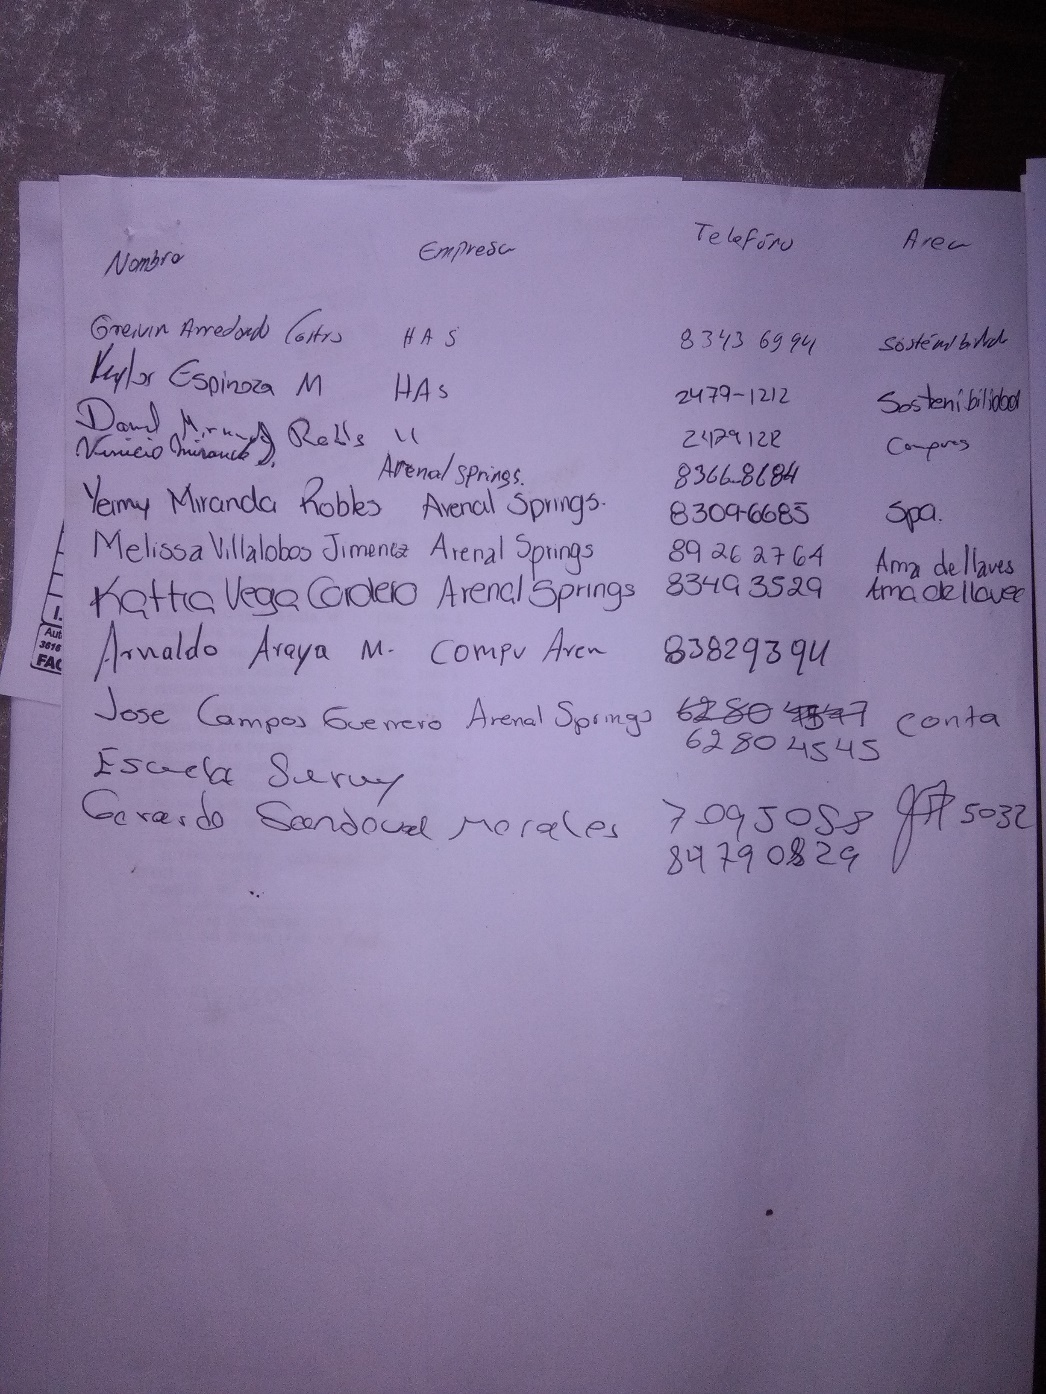 Nombre Empresa Telefóno Area
Greivin Arredondo Castro HAS 8343 6994 Sostenibilidad
Keylor Espinoza M HAs 2479-1212 Sostenibilidad
Miranda Robles 11 Compras
Vinicio Miranda Arenal Springs. 8366-8684
Yeimy Miranda Robles Arenal Springs. 8309-6685 Spa.
Melissa Villalobos Jimenez Arenal Springs 89 26 27 64 Ama de llaves
Kattia Vega Cordero Arenal Springs 8349 3529 Ama de llaves
Arnaldo Araya M. Compu Aren 83829394
Jose Campos Guerrero Arenal Springs 6280 4547 Conta
6280 4545
Escuela
Gerardo Sandoval Morales 7095058 5032
84790829
Aut
3616
FAC